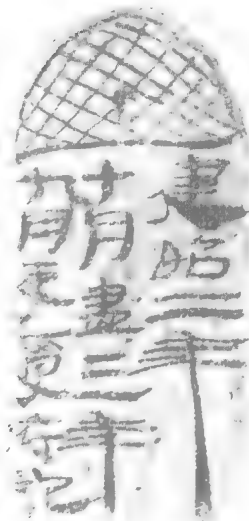 建昭二年
十月盡三年
九月吏受